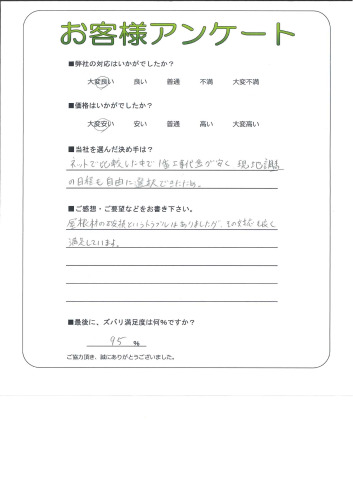 お客様アンケート
■弊社の対応はいかがでしたか?
大変良い 良い 普通 不満 大変不満
■価格はいかがでしたか?
大変安い 安い 普通 高い 大変高い
■当社を選んだ決め手は?
ネットで比較した中で1番工事代金が安く 現地調査
の日程も自由に選択できたため。
■ご感想・ご要望などをお書き下さい。
屋根材の破損というトラブルはありましたが、その対応も良く
満足しています。
■最後に、ズバリ満足度は何%ですか?
95 %
ご協力頂き、誠にありがとうございました。